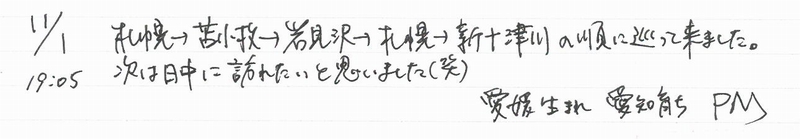 11/1 札幌→苫小牧→岩見沢→札幌→新十津川の順に巡って来ました。
19:05 次は日中に訪れたいと思いました(笑)
愛媛生まれ 愛知育ち PM